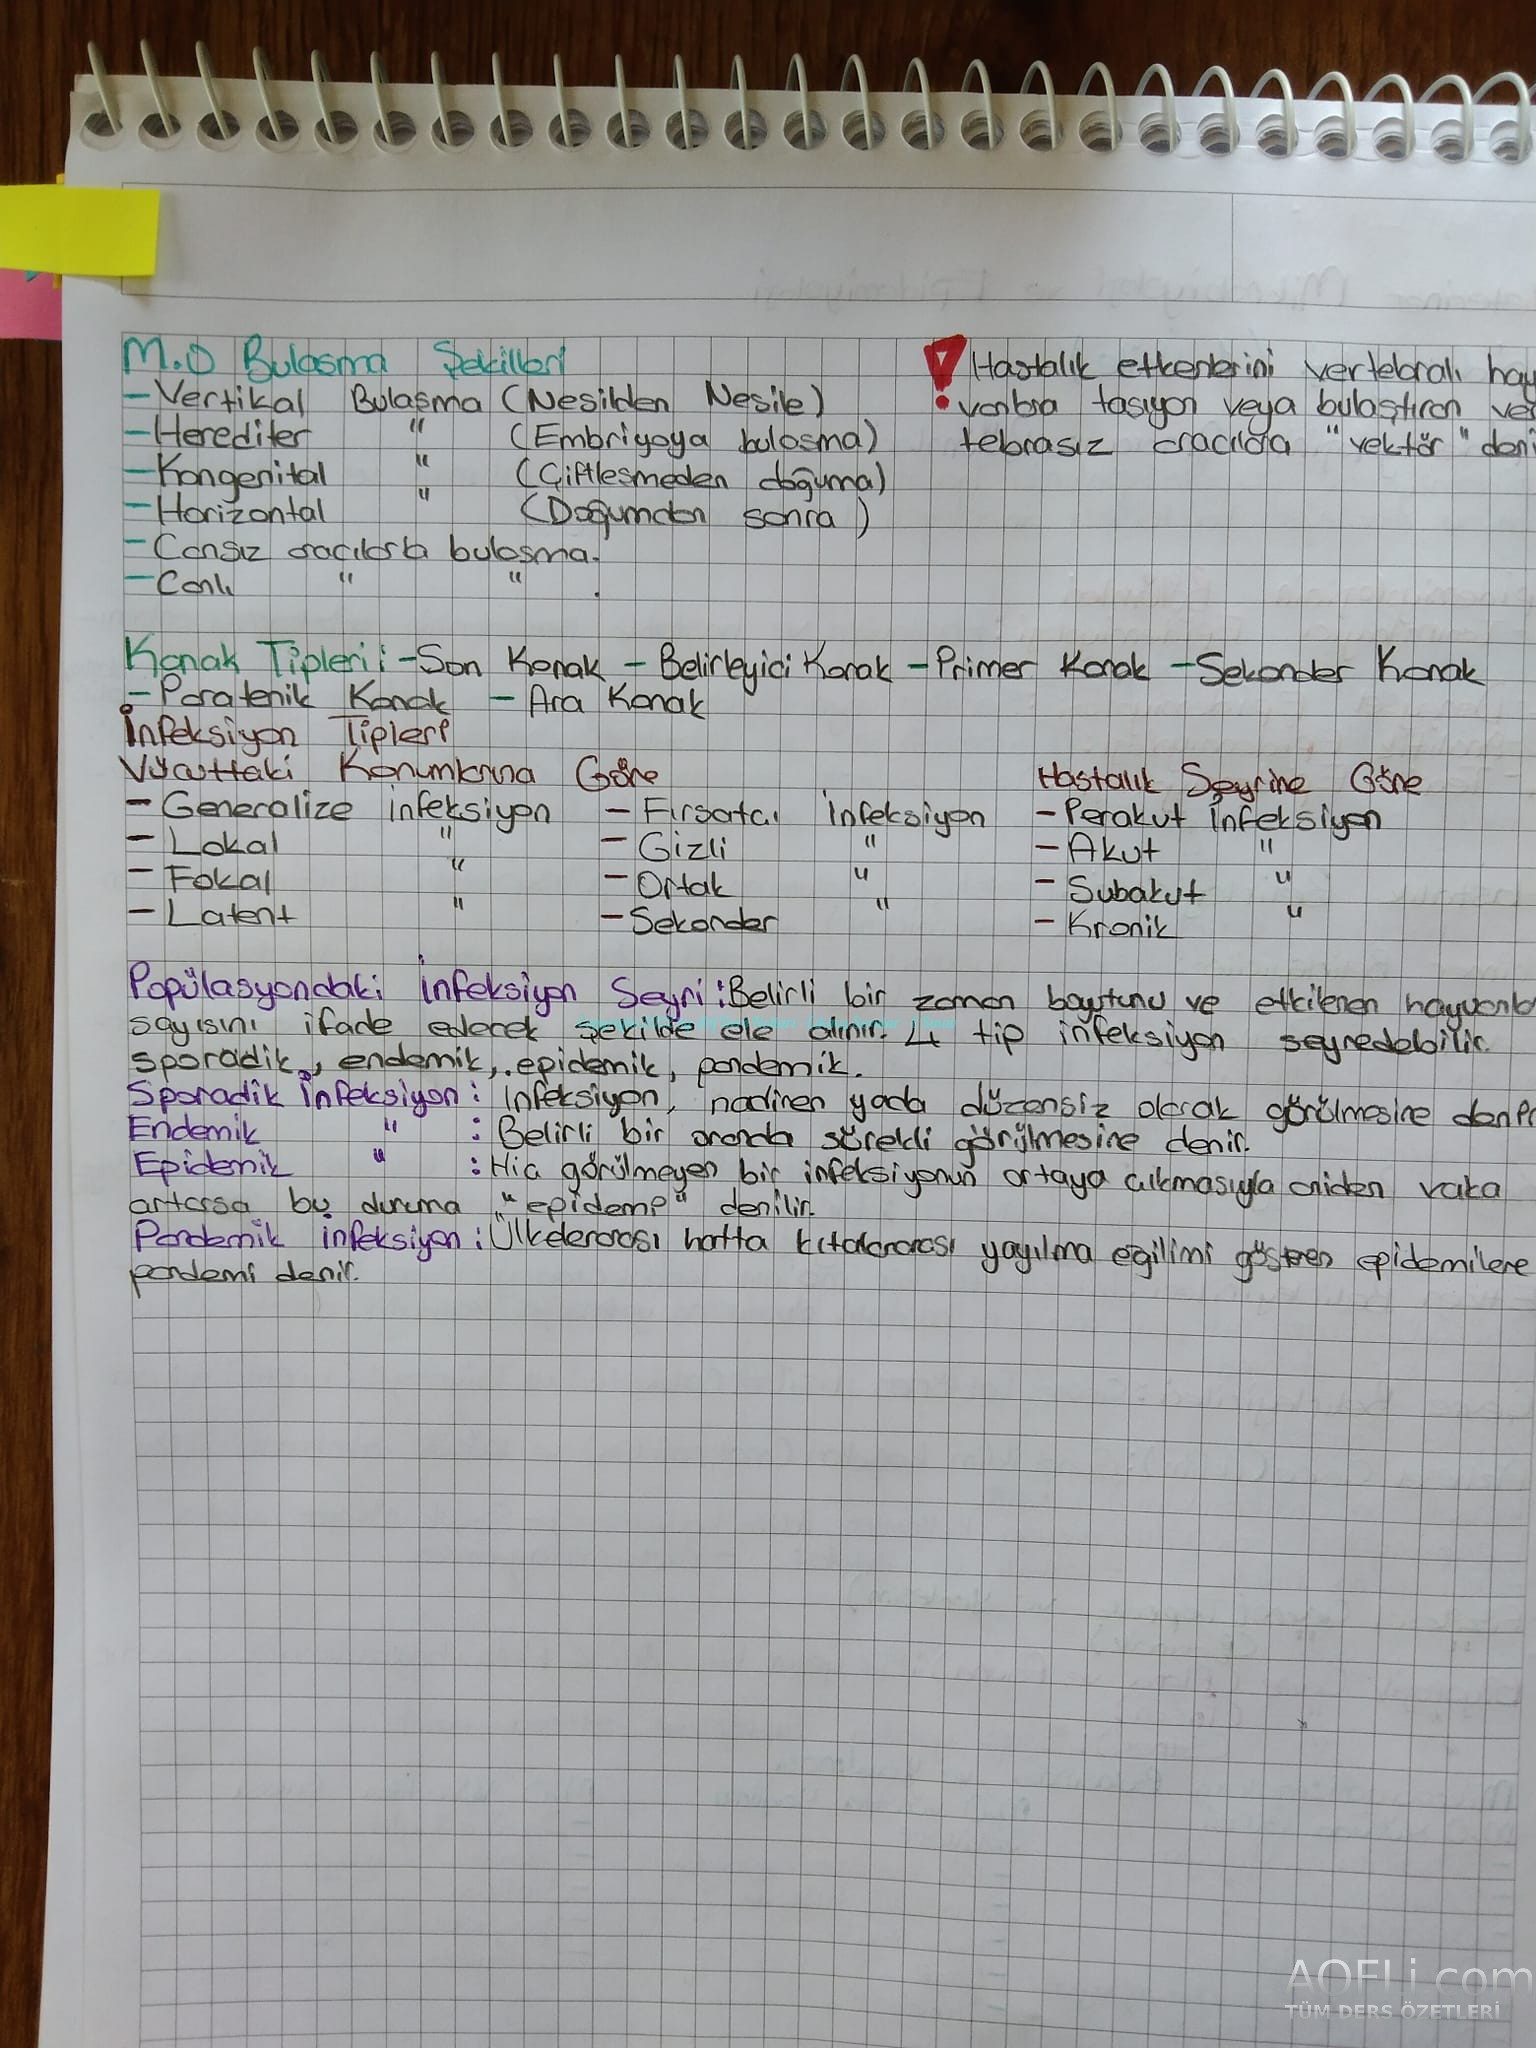 M.O Bulaşma Şekilleri
- Vertikal Bulaşma (Nesilden Nesile)
- Herediter " (Embriyoya bulaşma)
- Kongenital " (Çiftleşmeden doğuma)
- Horizontal " (Doğumdan sonra)
- Cansız aracılarla bulaşma.
- Canlı " " .
! Hastalık etkenlerini vertebralı hay
vanlara taşıyan veya bulaştıran ver
tebrasız aracılara "vektör" deni
Konak Tipleri: - Son Konak - Belirleyici Konak - Primer Konak - Sekonder Konak
- Paratenik Konak - Ara Konak
İnfeksiyon Tipleri
Vücuttaki Konumlarına Göre
- Generalize infeksiyon - Fırsatçı infeksiyon
- Lokal " - Gizli "
- Fokal " - Ortak "
- Latent " - Sekonder "
Hastalık Seyrine Göre
- Perakut İnfeksiyon
- Akut "
- Subakut "
- Kronik "
Popülasyondaki İnfeksiyon Seyri: Belirli bir zaman boyutunu ve etkilenen hayvanla
sayısını ifade edecek şekilde ele alınır. 4 tip infeksiyon seyredebilir.
sporadik, endemik, epidemik, pandemik.
Sporadik İnfeksiyon: İnfeksiyon, nadiren yada düzensiz olarak görülmesine deni
Endemik " : Belirli bir oranda sürekli görülmesine denir.
Epidemik " : Hiç görülmeyen bir infeksiyonun ortaya çıkmasıyla aniden vaka
artarsa bu duruma "epidemi" denilir.
Pandemik infeksiyon: Ülkelerarası hatta kıtalararası yayılma eğilimi gösteren epidemilere
pandemi denir.
AOFLi.com
TÜM DERS ÖZETLERİ